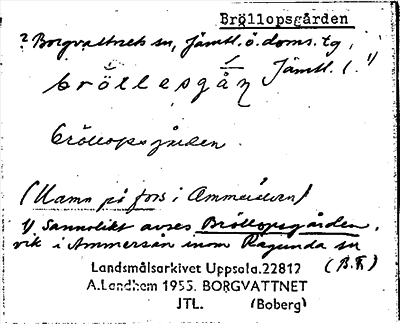 Bröllopsgården
? Borgvattnets sn, Jämtl. ö. doms. tg,
Jämtl. l. 1)
bröllesgån
bröllopsgården.
(Namn på fors i Ammerälven)
1) Sannolikt avses Bröllopsgården,
vik i Ammersån inom Ragunda sn
(B.F)
Landsmålsarkivet Uppsala.22812
A.Landhem 1955. BORGVATTNET
JTL. (Boberg)